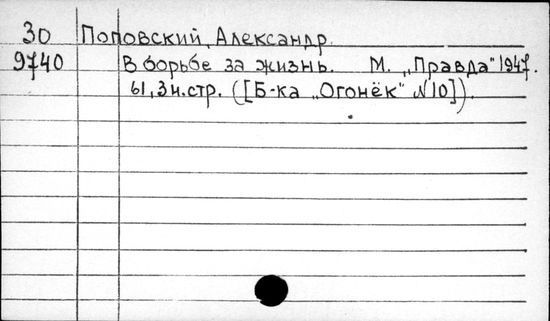 30 Поповский, Александр.
9740 В борьбе за жизнь. М. „Правда" 1947.
61, 3 н. стр. ([Б-ка „Огонёк" №10]).